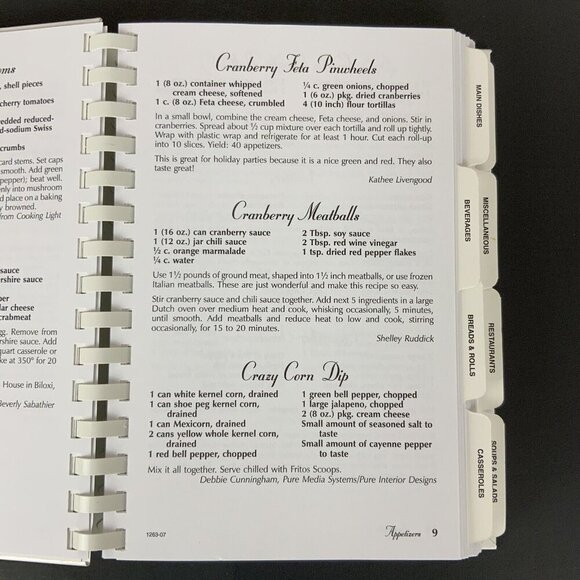 oms
, shell pieces
cherry tomatoes
edded reduced-
d-sodium Swiss
crumbs
card stems. Set caps
smooth. Add green
pepper); beat well.
enly into mushroom
d place on a baking
y browned.
from Cooking Light
sauce
ershire sauce
per
lar cheese
crabmeat
gg. Remove from
rshire sauce. Add
quart casserole or
ke at 350° for 20
House in Biloxi,
Beverly Sabathier
Cranberry Feta Pinwheels
1 (8 oz.) container whipped
cream cheese, softened
1 c. (8 oz.) Feta cheese, crumbled
¼ c. green onions, chopped
1 (6 oz.) pkg. dried cranberries
4 (10 inch) flour tortillas
In a small bowl, combine the cream cheese, Feta cheese, and onions. Stir in
cranberries. Spread about ½ cup mixture over each tortilla and roll up tightly.
Wrap with plastic wrap and refrigerate for at least 1 hour. Cut each roll-up
into 10 slices. Yield: 40 appetizers.
This is great for holiday parties because it is a nice green and red. They also
taste great!
Kathee Livengood
Cranberry Meatballs
1 (16 oz.) can cranberry sauce
1 (12 oz.) jar chili sauce
½ c. orange marmalade
¼ c. water
2 Tbsp. soy sauce
2 Tbsp. red wine vinegar
1 tsp. dried red pepper flakes
Use 1½ pounds of ground meat, shaped into 1½ inch meatballs, or use frozen
Italian meatballs. These are just wonderful and make this recipe so easy.
Stir cranberry sauce and chili sauce together. Add next 5 ingredients in a large
Dutch oven over medium heat and cook, whisking occasionally, 5 minutes,
until smooth. Add meatballs and reduce heat to low and cook, stirring
occasionally, for 15 to 20 minutes.
Shelley Ruddick
Crazy Corn Dip
1 can white kernel corn, drained
1 can shoe peg kernel corn,
drained
1 can Mexicorn, drained
2 cans yellow whole kernel corn,
drained
1 red bell pepper, chopped
1 green bell pepper, chopped
1 large jalapeno, chopped
2 (8 oz.) pkg. cream cheese
Small amount of seasoned salt to
taste
Small amount of cayenne pepper
to taste
Mix it all together. Serve chilled with Fritos Scoops.
Debbie Cunningham, Pure Media Systems/Pure Interior Designs
1263-07
Appetizers 9
MAIN DISHES
MISCELLANEOUS
BEVERAGES
RESTAURANTS
BREADS & ROLLS
SOUPS & SALADS
CASSEROLES